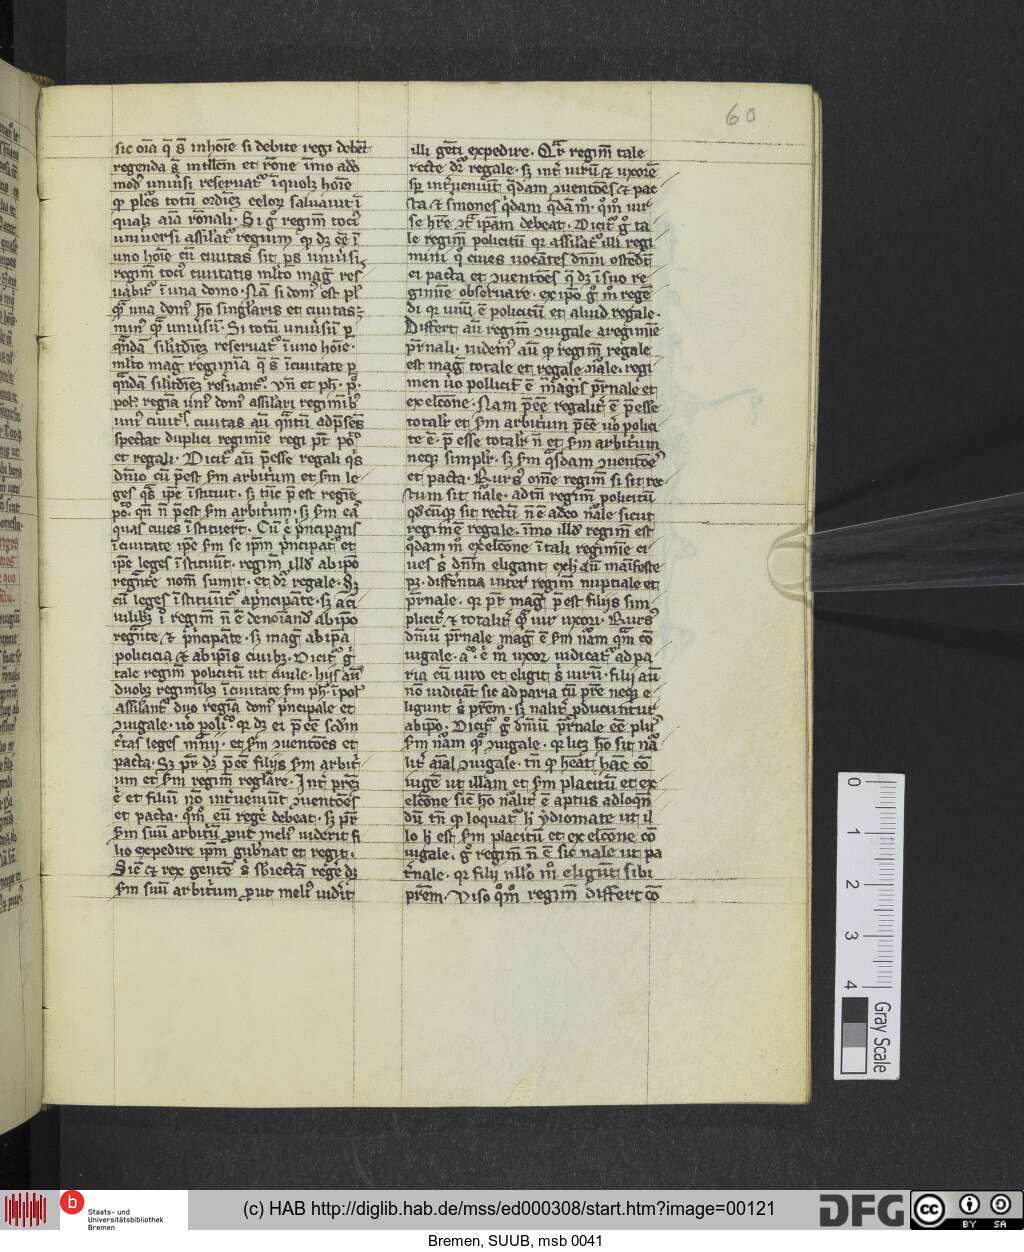 60
sic oīa q̄ s̄ in hoīe si debite regi debēt
regenda s̄ intllem et rōne īmo adō
modꝰ uniūsi reseruatᷣ ī quolꝫ hoīe
ꝙ plēs totū ordiēꝫ celoꝝ saluauit ī
qualꝫ aīa rōnali. Si gͦ regim̄ tociꝰ
uniuersi assilatᷣ regim̄ ꝙ dꝫ eē ī
uno hoīe cū ciuitas sit ps uniūsi
regim̄ tociꝰ ciuitatis mlto maḡ res̄
uabitᷣ ī una domo. Nā si domꝰ est plꝰ
qᷓ una domꝰ hō singlaris et ciuitas
minꝰ qᷓ uniūsū. Si totū uniūsū ꝑ
qn̄dā silitdiēꝫ reseruatᷣ ī uno hoīe.
mlto maḡ regimīa q̄ s̄ ī ciuitate ꝑ
qn̄dā silitdiēꝫ res̄uantᷣ. Vn̄ et ph̄. pͦ.
pol. regīa uniꝰ domꝰ assilari regimībꝰ
uniꝰ ciuitꝭ. ciuitas aū qn̄tū ad p̄sēs
spectat duplici regimīe regi pt̄ polͦ
et regali. Dicitᷣ aū p̄esse regali qͥs
dn̄io cū p̄est s̄m arbitᷣum et s̄m le
ges qᷓs ipē īstituit. sꝫ tūc p̄est regīē
poͦ. qn̄ n̄ p̄est s̄m arbitᷣum. sꝫ s̄m eā
quas ciues īstituert̄. Cū ē pⁱncipans
ī ciuitate ipē s̄m se ipm̄ pⁱncipatᷣ et
ipē leges īstituūt. regim̄ illd̄ ab ipō
regnte nom̄ sumit. et dr̄ regale. Sꝫ
cū leges īstituūtᷣ apⁱncipāte. sꝫ a ci
uilibꝫ iͦ regim̄ n̄ ē denoīandꝰ ab ipō
regn̄te, et pⁱncipāte. sꝫ maḡ ab ipā
policicia et ab ipīs ciuibꝫ. Dicitᷣ gͦ
tale regim̄ policitū ut ciuile. hijs aūͭ
duobꝫ regimibꝫ ī ciuitate s̄m ph̄. ī polͭ
assilantᷣ duo regīa domꝰ pⁱncipale et
ꝯiugale. uō poliͦ. qꝛ dꝫ ei p̄eē scdm
cͭtas leges mr̄ij. et s̄m ꝯuentōes et
pacta. Sꝫ pr̄ dꝫ p̄eē filijs s̄m arbitⁱ
um et s̄m regim̄ reglare. Int̄ prēꝫ
ē et filiū nō int̄ueniūt ꝯuentōes
et pacta. qͦmͦ. eū regē debeat. sꝫ pr̄
s̄m suū arbitū ꝓut melꝰ uiderit fi
lio expedire ipm̄ gub̄nat et regit.
Siē et rex gentē s̄ sbiectā regē dꝫ
s̄m suū arbitᷣum ꝓut melꝰ uidit̄
illi gēti expedire. Qͣr regim̄ tale
recte dr̄ regale. sꝫ int̄ uirū et uxorē
sꝑ int̄ueniūt qᷓdam ꝯuentōes et pac
ta et s̄mones qᷓdam qᷓdā mͦ. qͦmͦ uir
se hr̄e ꝯᷓ ipam debeat. Dicitᷣ gͦ ta
le regim̄ policitū qꝛ assilatᷣ illi regi
mini qͦ ciues uocātes dn̄m ostēdūt
ei pacta et ꝯuentōes q̄ dꝫ ī suo re
gimīe obseruare. ex ipō gͦ mͦ regē
di qꝛ unū ē policitū et aliud regale.
Differt aū regim̄ ꝯiugale a regimīe
pr̄nali. uidemꝰ aū ꝙ regim̄ regale
est maḡ totale et regale nͣale. regi
men uō policitᷣ ē magis pr̄nale et
ex elcōne. Nam p̄eē regalitᷣ ē p̄esse
totalr̄ et s̄m arbitᷣum p̄eē uō polici
te ē. p̄esse totalr̄ n̄ et s̄m arbitᷣum
neqꝫ simplr̄. sꝫ s̄m qᷓsdam ꝯuentōeꝭ
et pacta. Rursꝰ om̄e regim̄ si sit re
ctum sit nͣale. ad tn̄ regim̄ policitū
qͦdcūqꝫ sit rectū n̄ ē adeo nͣale sicut
regimē regale. īmo illd̄ regim̄ est
qͦdam mͦ ex elcōne ī tali regimīe ci
ues s̄ dn̄m eligant ex h̄ aū maīfeste
pꝫ. differītia inter regim̄ nuptiale et
pr̄nale. qꝛ pr̄ maḡ p̄est filijs sim
plicitᷣ et totalitᷣ qᷓ uir uxori. Rursꝰ
dn̄iū pr̄nale maḡ ē s̄m nāam qᷓm cō
iugale. aͦ. ē mͦ uxor iudicatᷣ ad pa
ria cū uiro et eligit s̄ uirū. filij aū
nō iudicāt sic ad paria cū prē neqꝫ e
ligunt s̄ prēm. sꝫ nalitᷣ ꝓducuntur
ab ipō. Dicitᷣ gͦ dn̄iū pr̄nale eē plꝰ
s̄m nāam qᷓ ꝯiugale. qꝛ licꝫ hō sit nͣa
litᷣ aīal ꝯiugale. tn̄ ꝙ hēat hāc cō
iugē ut illam et s̄m placitū et ex
elcōne siē hō nͣalitᷣ ē aptus ad loqn̄
dū. tn̄ ꝙ loquatᷣ h̄ ydiomate ut il
lo h̄ est s̄m placitū et ex elcōne cō
iugale. gͦ regim̄ n̄ ē sic nale ut pa
t̄nale. qꝛ filij nllͦ mͦ eligūt sibi
prēm. Viso qͦmͦ regim̄ differt cō
0 1 2 3 4
Gray Scale
b Staats- und
Universitätsbibliothek
Bremen
(c) HAB http://diglib.hab.de/mss/ed000308/start.htm?image=00121
DFG
cc BY SA
Bremen, SUUB, msb 0041